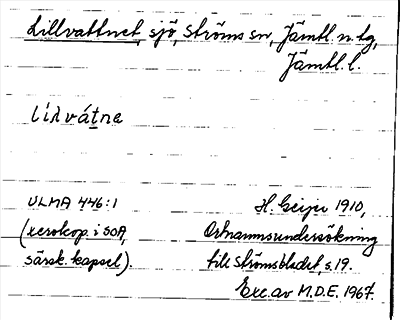 Lillvattnet, sjö, Ströms sn, Jämtl. n. tg,
Jämtl. l.
lilvátne
ULMA 446:1 H. Geijer 1910,
(xerokop. i SOA, Ortnamnsundersökning
särsk. kapsel). till Strömsbladet, s. 19.
Exc. av M.D.E. 1967.